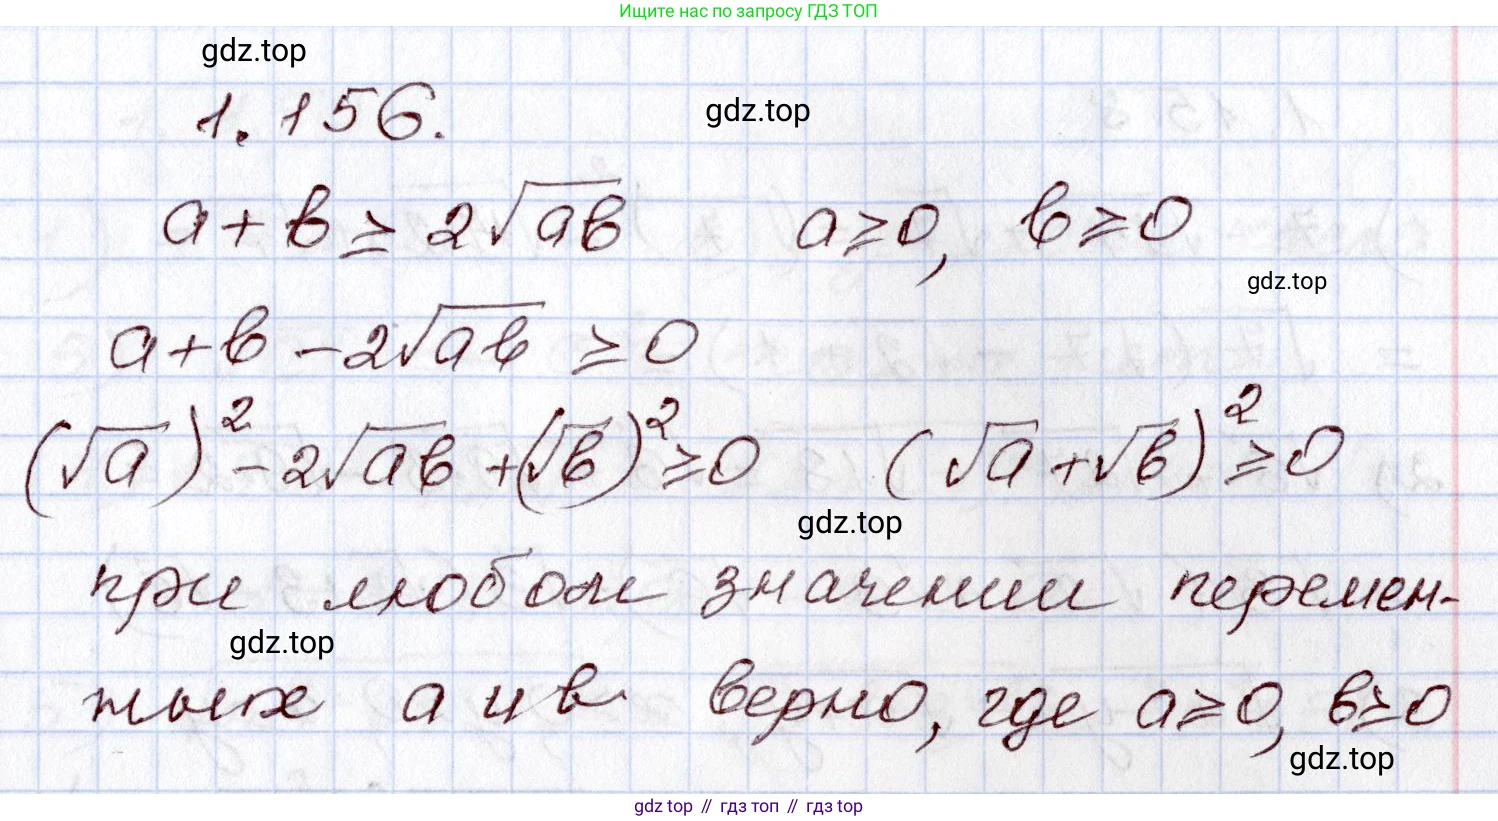 Ищите нас по запросу ГДЗ ТОП
gdz.top
1.156.
gdz.top
a+b≥2√ab a≥0, b≥0
gdz.top
a+b-2√ab ≥0
(√a)²-2√ab+(√b)²≥0 (√a+√b)²≥0
gdz.top
при любом значении перемен-
gdz.top
ных a и b верно, где a≥0, b≥0
gdz.top
gdz top // гдз топ // гdz top